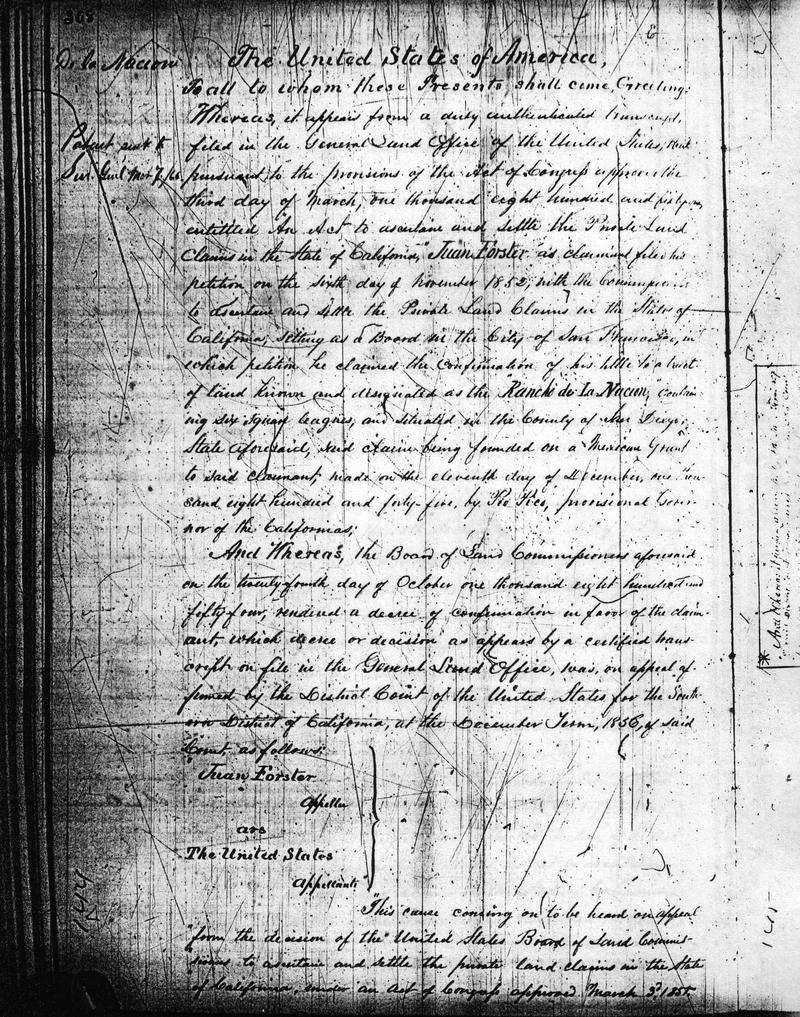 368
De la Nacion
The United States of America,
To all to whom these Presents shall come, Greeting:
Whereas, it appears from a duly authenticated transcript,
Patent sent to
filed in the General Land Office of the United States, that
pursuant to the provisions of the Act of Congress approved the
third day of March, one thousand eight hundred and fifty one,
entitled An Act to ascertain and settle the Private Land
Claims in the State of California, "Juan Forster" as claimant filed his
petition on the sixth day of November 1852, with the Commissioners
to ascertain and settle the Private Land Claims in the State of
California, sitting as a Board in the City of San Francisco, in
which petition he claimed the confirmation of his title to a tract
of land known and designated as the "Rancho de la Nacion," contain
ing six square leagues, and situated in the County of San Diego,
State aforesaid, said claim being founded on a Mexican Grant
to said claimant, made on the eleventh day of December, one thou
sand eight hundred and forty five, by Pio Pico, provisional Gover
nor of the Californias;
And Whereas, the Board of Land Commissioners aforesaid
on the twenty fourth day of October one thousand eight hundred and
fifty four, rendered a decree of confirmation in favor of the claim-
ant, which decree or decision as appears by a certified trans-
cript on file in the General Land Office, was, on appeal af-
firmed by the District Court of the United States for the South-
ern District of California, at the December Term, 1856, of said
Court, as follows:
"Juan Forster
Appellee
ads
The United States
Appellants"
"This cause coming on to be heard on appeal
"from the decision of the United States Board of Land Commis-
"sioners to ascertain and settle the private land claims in the State
"of California, under an Act of Congress approved March 3d. 1851
144
145
* And Whereas it